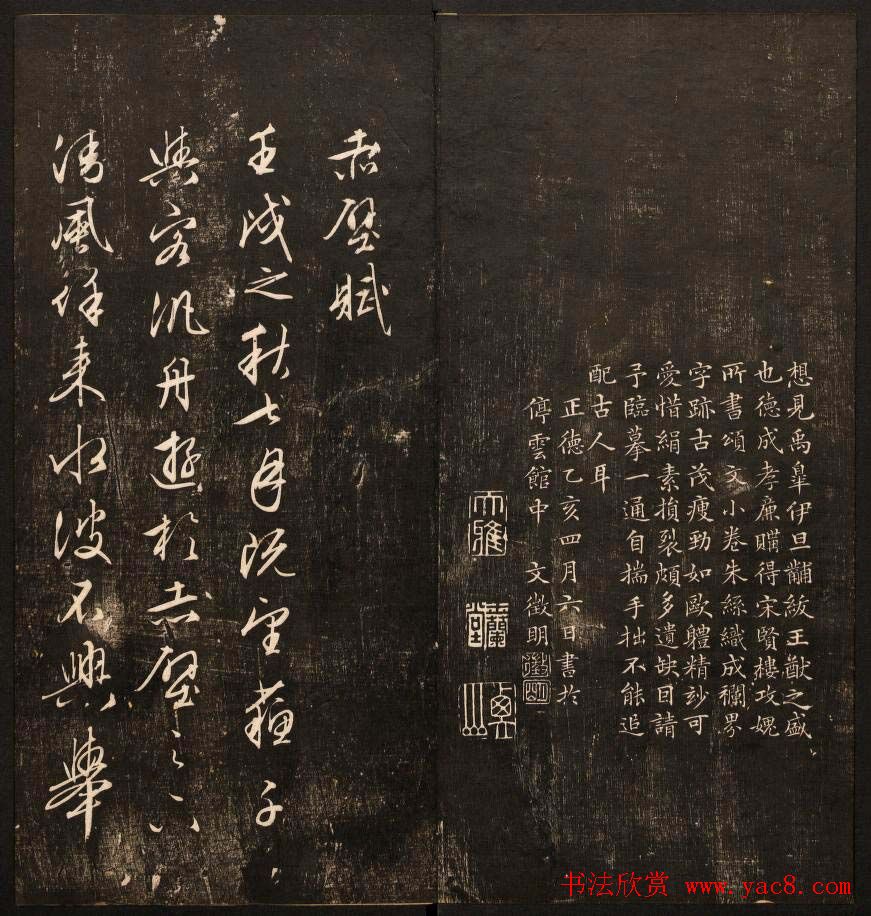 想見禹皋伊旦黼紱王猷之盛
也德成孝廉購得宋賢樓攻媿
所書頌文小卷朱絲織成襴界
字跡古茂瘦勁如歐體精玅可
愛惜絹素損裂頗多遺缺因請
予臨摹一通自揣手拙不能追
配古人耳
正德乙亥四月六日書於
停雲館中 文徵明
徵明
赤壁賦
壬戌之秋七月既望蘇子
與客汎舟遊於赤壁之下
清風徐來水波不興舉
书法欣赏 www.yac8.com